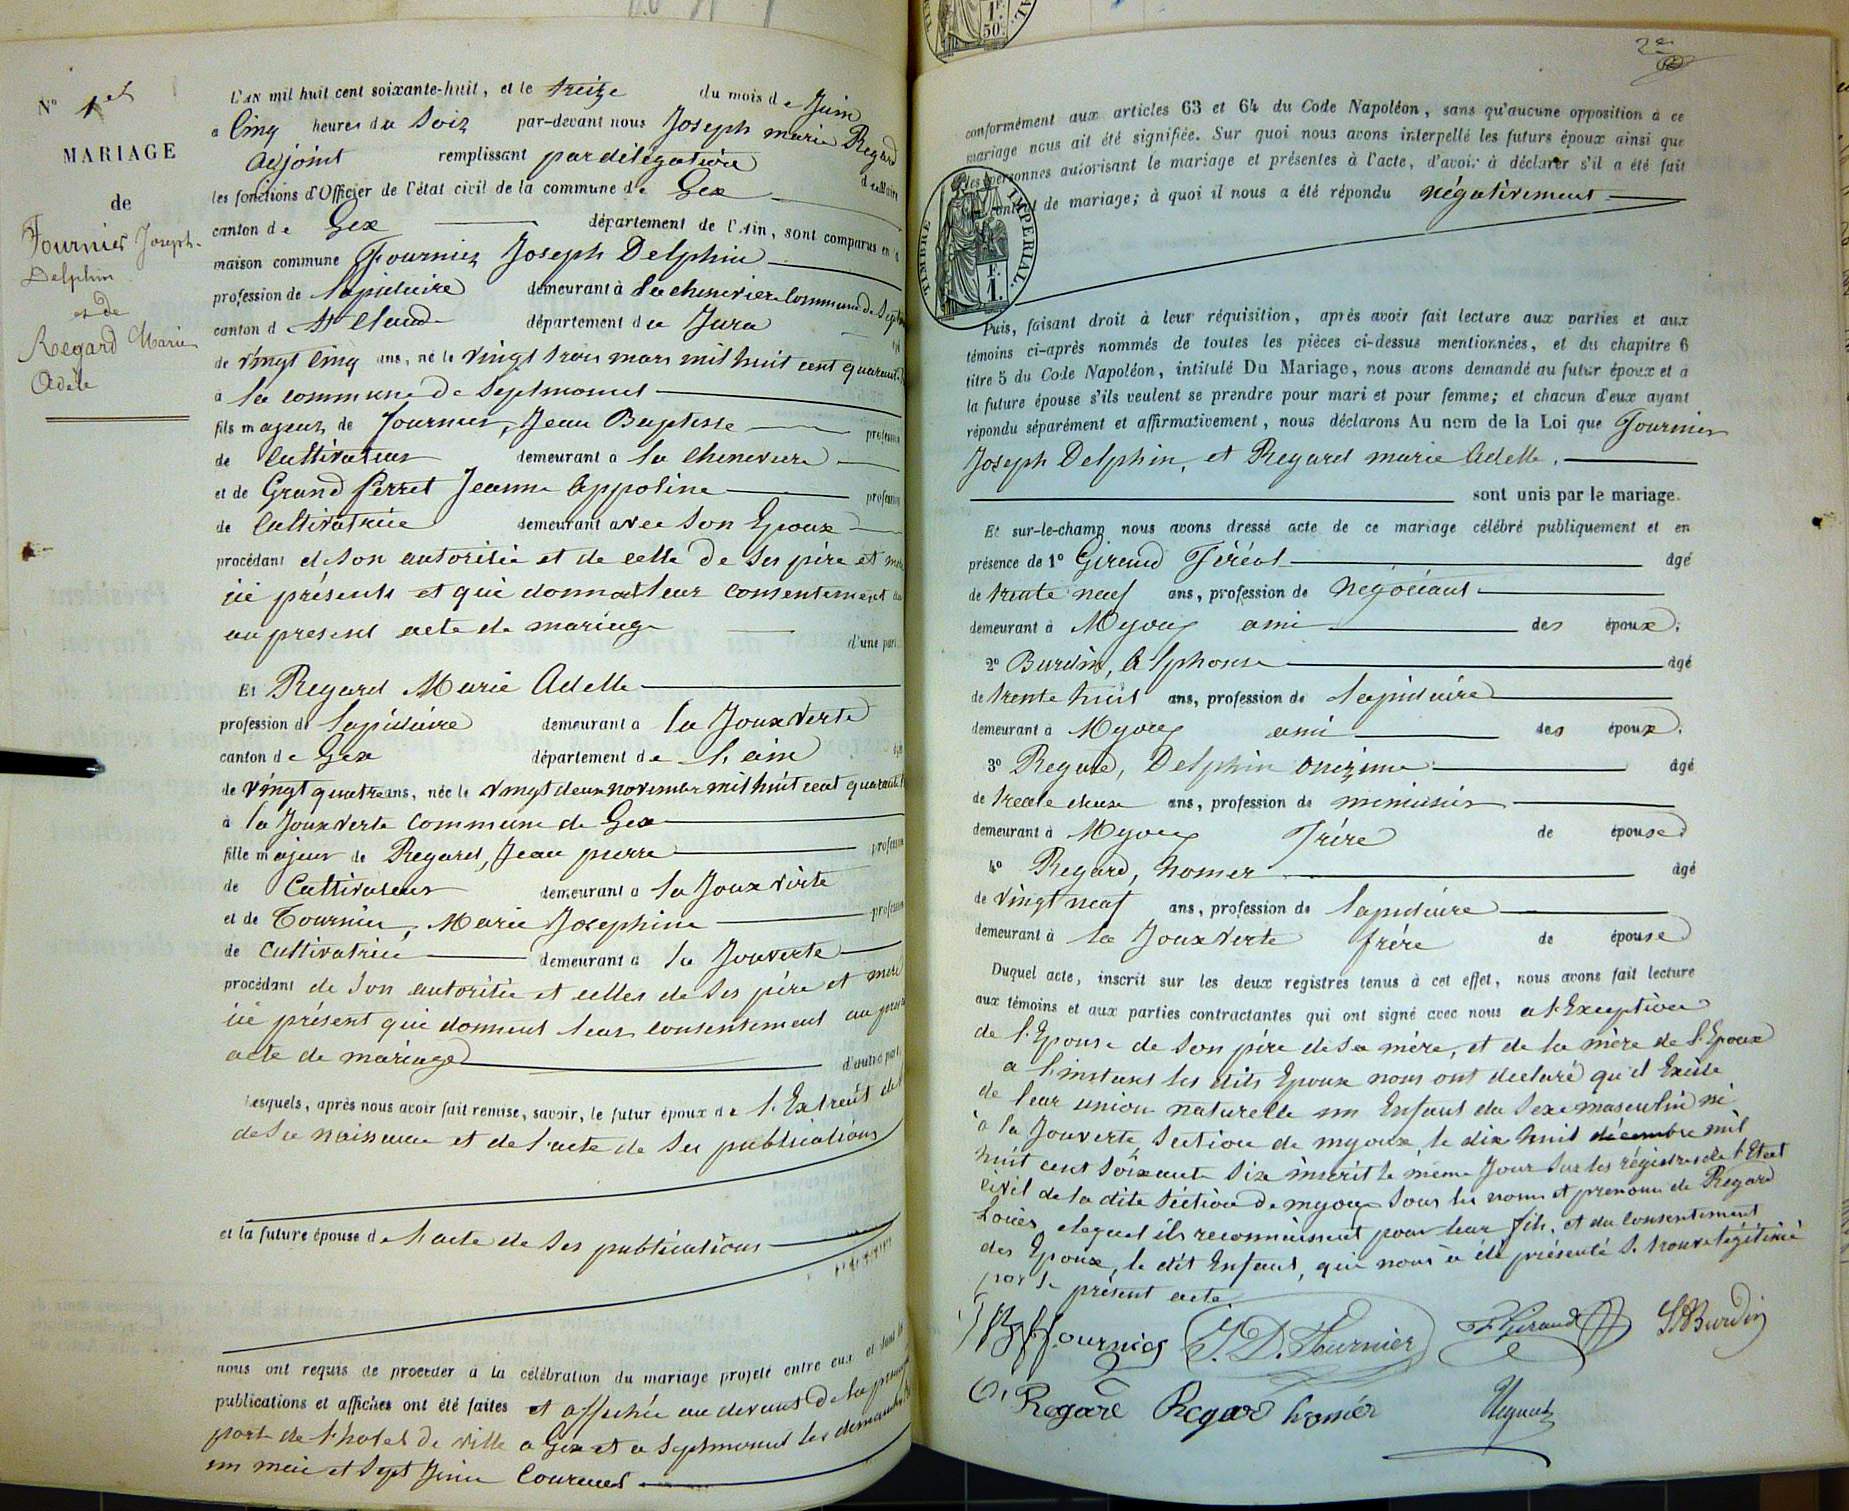 N° 1er
MARIAGE
de
Fournier Joseph-
Delphin
et de
Regard Marie
Adèle
L'AN mil huit cent soixante-huit, et le treize du mois de Juin
a Cinq heures du Soir par-devant nous Joseph marie Regard
adjoint remplissant par délégation
les fonctions d'Officier de l'état civil de la commune de Gex
canton de Gex département de l'Ain, sont comparus en la
maison commune Fournier Joseph Delphin
profession de lapidaire demeurant à La cheneviere Commune de Septm
canton d St Claude département du Jura
de vingt Cinq ans, né le vingt trois mars mil huit cent quarante
à la commune de Septmoncel
fils majeur de Fournier, Jean Baptiste profession
de Cultivateur demeurant à la Cheneviere
et de Grand Perret Jeanne Appoline profession
de Cultivatrice demeurant avec son Epoux
procédant de son autoritée et de celle de ses père et mère
ici présents et qui donnent leur consentement
au present acte de mariage d'une part.
Et Regard Marie Adelle
profession de lapidaire demeurant a la Joux Verte
canton de Gex département de L'ain
de vingt quatre ans, née le vingt deux novembre mil huit cent quarante
à la Joux verte Commune de Gex
fille majeur de Regard, Jean pierre profession
de Cultivateur demeurant a la Joux Verte
et de Tournier, Marie Josephine profession
de cultivatrice demeurant à la Jouverte
procédant de son autoritée et celles de ses père et mère
ici présent qui donnent leur consentement au présent
acte de mariage d'autre part.
Lesquels, après nous avoir fait remise, savoir, le futur époux de l'Extrait de
de sa naissance et de l'acte de ses publications
et la future épouse de l'acte de ses publications
nous ont requis de procéder à la célébration du mariage projeté entre eux et dont les
publications et affiches ont été faites et affichée au devant de la principale
porte de l'hotel de ville a Gex et a Septmoncel les dimanches
un mai et sept Juin Courant
2e
conformément aux articles 63 et 64 du Code Napoléon, sans qu'aucune opposition à ce
mariage nous ait été signifiée. Sur quoi nous avons interpellé les futurs époux ainsi que
les personnes autorisant le mariage et présentes à l'acte, d'avoir à déclarer s'il a été fait
contrat de mariage; à quoi il nous a été répondu négativement
TIMBRE IMPERIAL
1 F.
Puis, faisant droit à leur réquisition, après avoir fait lecture aux parties et aux
témoins ci-après nommés de toutes les pièces ci-dessus mentionnées, et du chapitre 6
titre 5 du Code Napoléon, intitulé Du Mariage, nous avons demandé au futur époux et à
la future épouse s'ils veulent se prendre pour mari et pour femme; et chacun d'eux ayant
répondu séparément et affirmativement, nous déclarons Au nom de la Loi que Fournier
Joseph Delphin, et Regard marie Adelle.
sont unis par le mariage.
Et sur-le-champ nous avons dressé acte de ce mariage célébré publiquement et en
présence de 1° Giraud Féréol âgé
de trente neuf ans, profession de Négociant
demeurant à Myoux ami des époux.
2° Burdin, Alphonse âgé
de trente huit ans, profession de lapidaire
demeurant à Myoux ami des époux.
3° Regard, Delphin Onézime âgé
de trente deux ans, profession de menuisier
demeurant à Myoux frère de épouse
4° Regard, homer âgé
de vingt neuf ans, profession de lapidaire
demeurant à la Joux Verte frère de épouse
Duquel acte, inscrit sur les deux registres tenus à cet effet, nous avons fait lecture
aux témoins et aux parties contractantes qui ont signé avec nous a l'Exception
de l'Epouse de son père de sa mère, et de la mère de l'Epoux
a l'instant les dits Epoux nous ont declaré qu'il Existe
de leur union naturelle un Enfant du Sexe masculin né
à la Jouverte, Section de myoux, le dix huit décembre mil
huit cent soixante six inscrit le même Jour sur les régistres de l'Etat
civil de la dite Section de myoux sous les noms et prenoms de Regard
Louis, lequel ils reconnaissent pour leur fils, et du consentement
des Epoux, le dit Enfant, qui nous a été présenté se trouve légitimé
par le présent acte
fournier J. D. Fournier F Giraud A Burdin
O, Regard Regard homér Regard